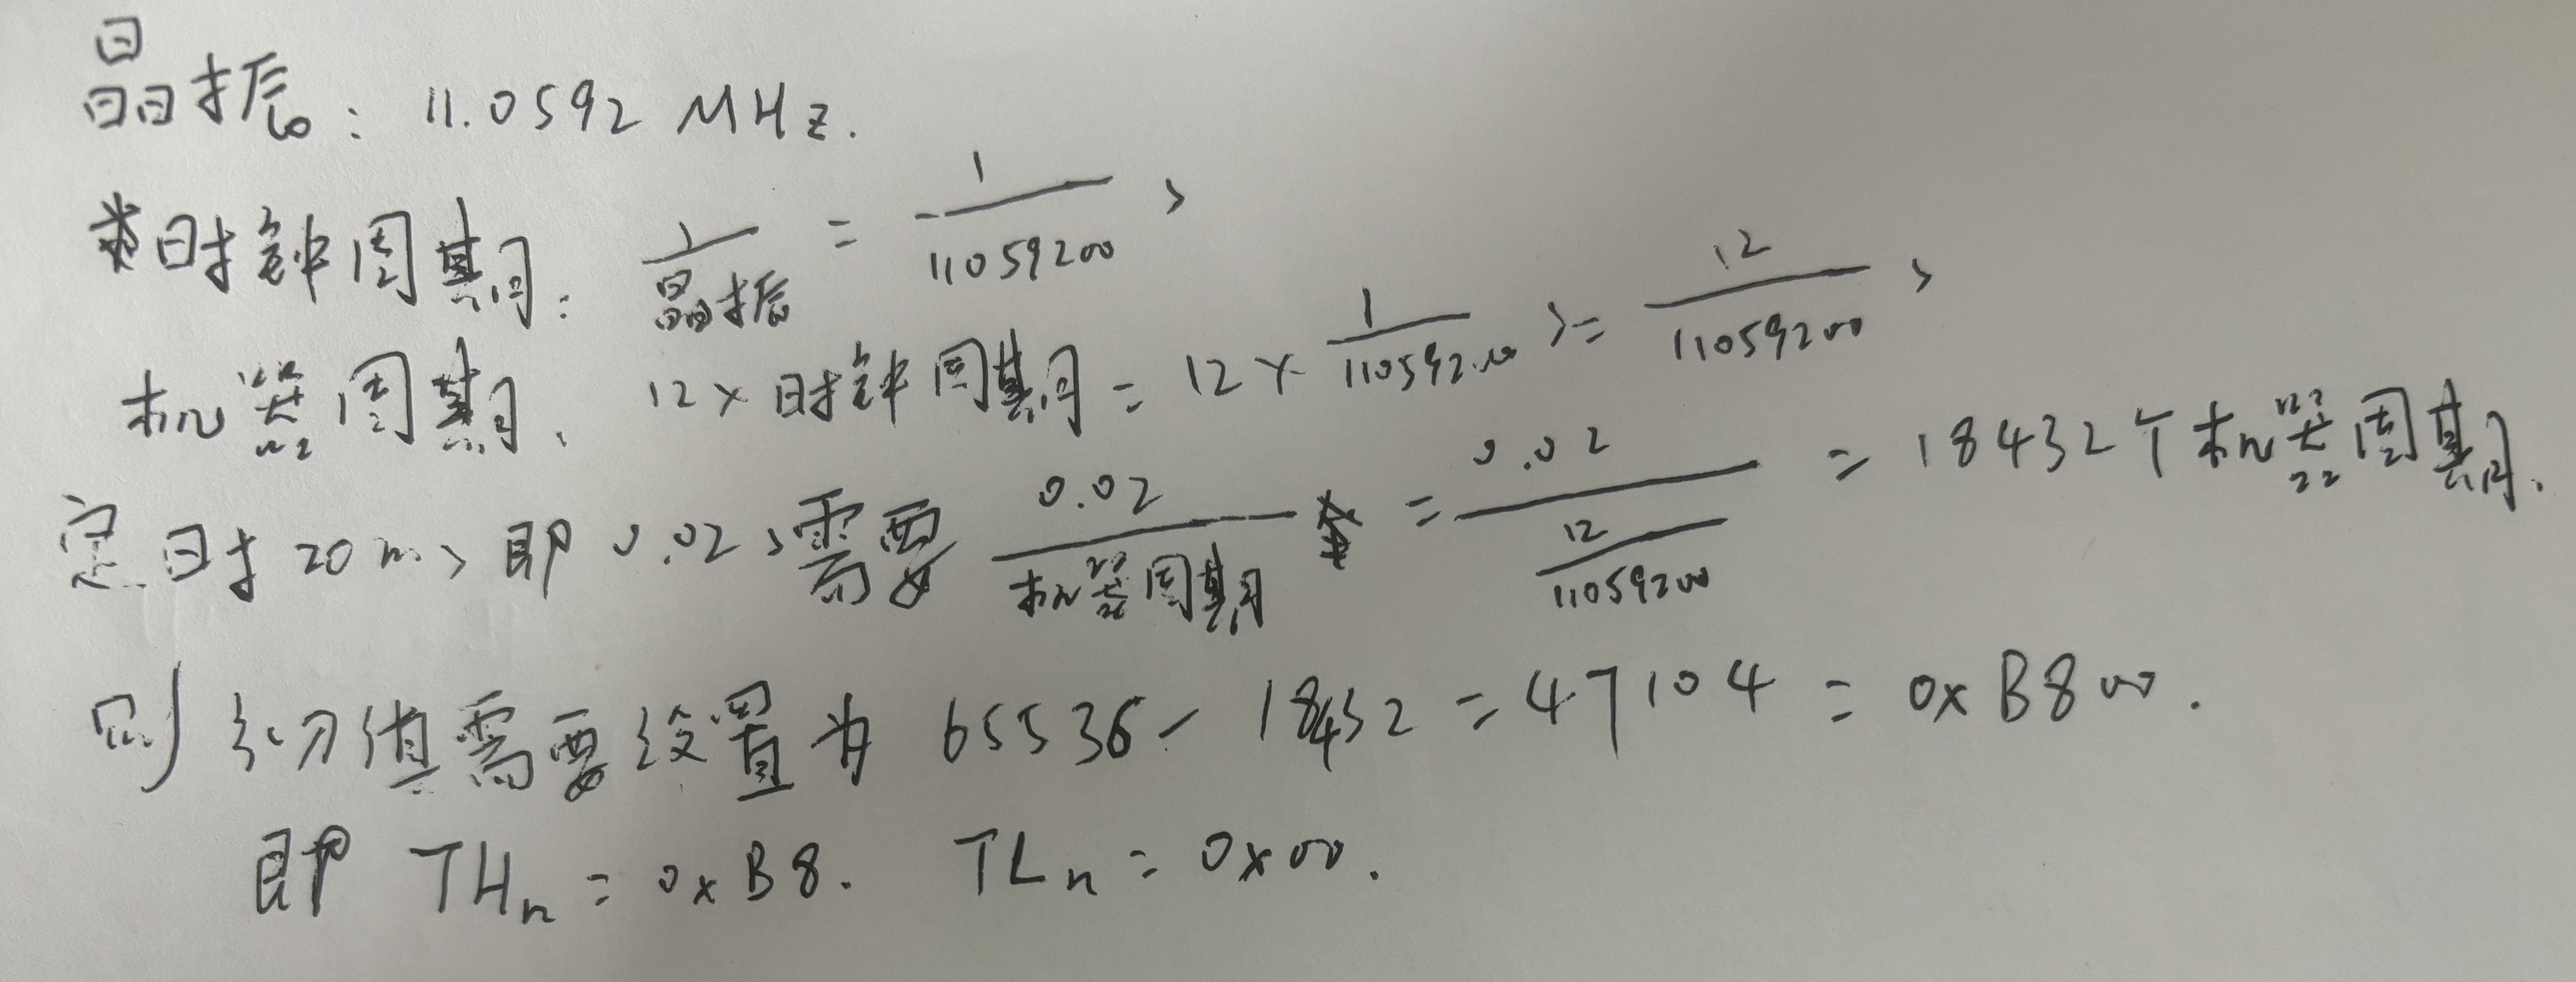 晶振: 11.0592 MHz.
时钟周期: 1/晶振 = 1/11059200 s
机器周期: 12×时钟周期 = 12 × 1/11059200 s = 12/11059200 s
定时 20ms 即 0.02s 需要 0.02/机器周期 = 0.02/(12/11059200) = 18432个机器周期.
则初值需要设置为 65536 - 18432 = 47104 = 0xB800.
即 THn = 0xB8. TLn = 0x00.